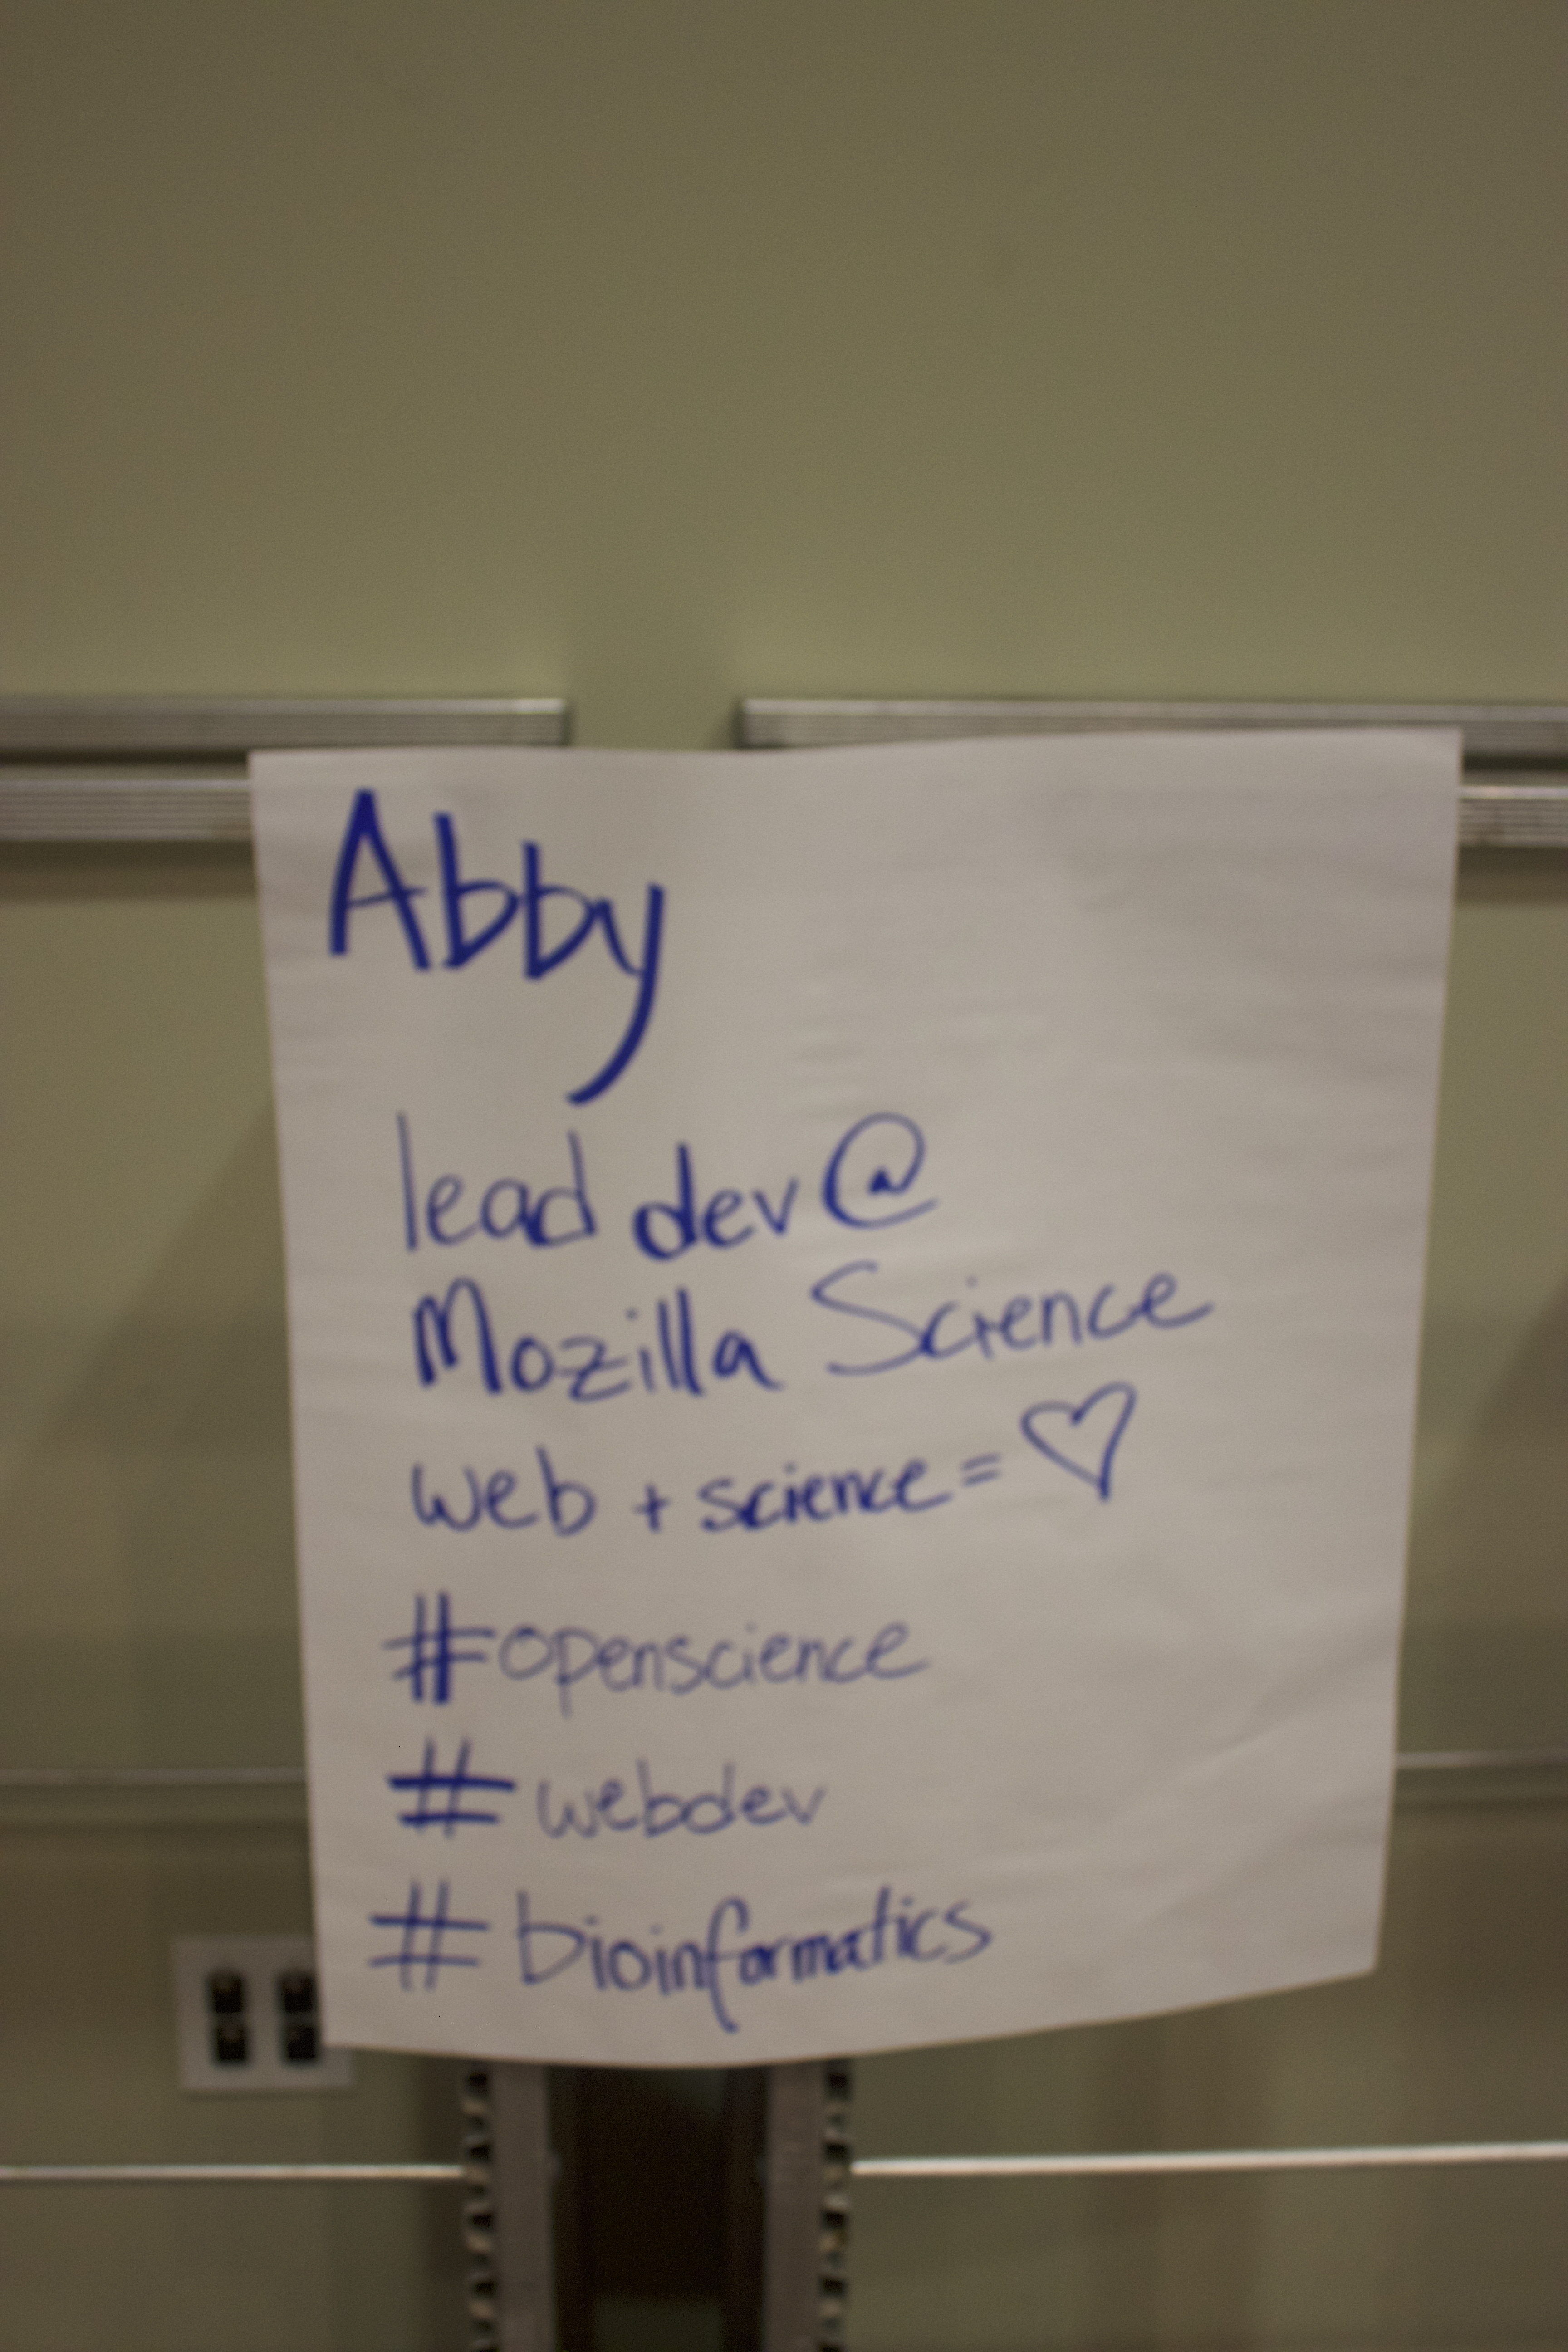 Abby
lead dev @
Mozilla Science
web + science = ♡
#openscience
# webdev
# bioinformatics